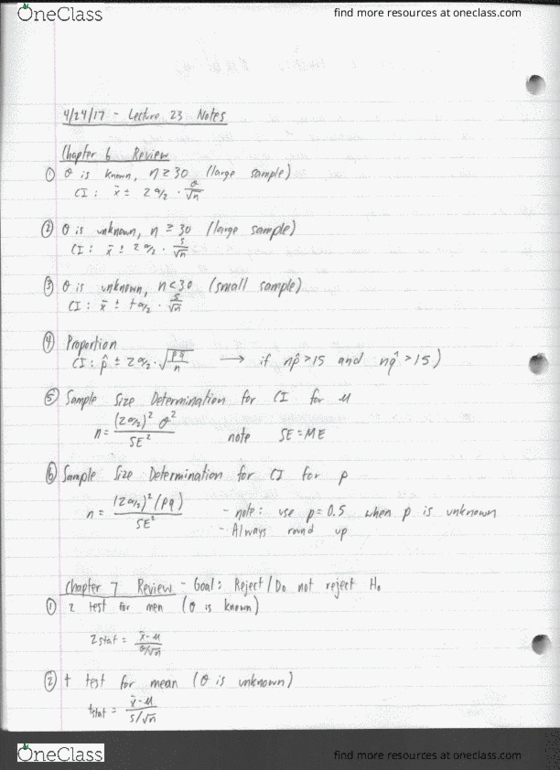 OneClass
find more resources at oneclass.com
4/24/17 - Lecture 23 Notes
Chapter 6 Review
① σ is known, n ≥ 30 (large sample)
CI: x̄ ± Zα/2 · σ/√n
② σ is unknown, n ≥ 30 (large sample)
CI: x̄ ± Zα/2 · s/√n
③ σ is unknown, n < 30 (small sample)
CI: x̄ ± tα/2 · s/√n
④ Proportion
CI: p̂ ± Zα/2 · √(pq/n) → if np̂ > 15 and nq̂ > 15)
⑤ Sample Size Determination for CI for μ
n = (Zα/2)² σ² / SE² note SE = ME
⑥ Sample Size Determination for CI for p
n = (Zα/2)² (pq) / SE² - note: use p = 0.5 when p is unknown
- Always round up
Chapter 7 Review - Goal: Reject / Do not reject H₀
① z test for men (σ is known)
Z stat = x̄ - μ / σ/√n
② t test for mean (σ is unknown)
t stat = x̄ - μ / s/√n
OneClass
find more resources at oneclass.com